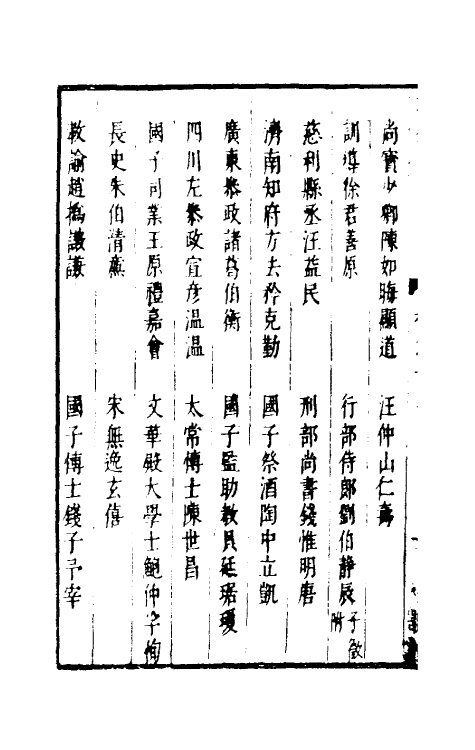 尚寶少卿陳如晦顯道　汪仲山仁壽
訓導徐君善原　行部侍郎劉伯靜辰子徵附
慈利縣丞汪益民　刑部尚書錢惟明唐
濟南知府方去矜克勤　國子祭酒陶中立凱
廣東叅政諸葛伯衡　國子監助教貝廷琚瓊
四川左叅政宜彥温温　太常博士陳世昌
國子司業王原禮嘉會　文華殿大學士鮑仲孚恂
長史朱伯清㢘　宋無逸玄僖
教諭趙撝謙謙　國子博士錢子予宰